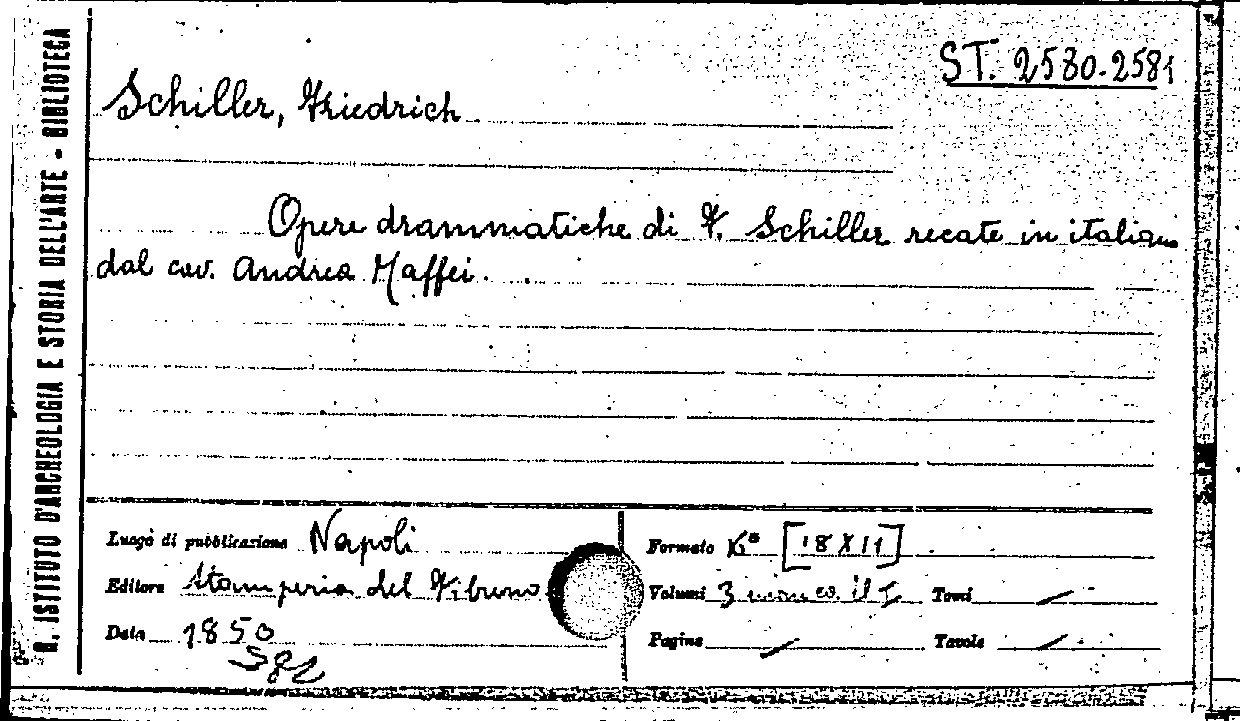 R. ISTITUTO D'ARCHEOLOGIA E STORIA DELL'ARTE - BIBLIOTECA
ST. 2580-2581
Schiller, Friedrich
Opere drammatiche di F. Schiller recate in italiano
dal cav. Andrea Maffei.
Luogo di pubblicazione Napoli
Editore Stamperia del Fibreno
Data 1850
Formato [18 X 11]
Volumi 3 manca il I Tomi /
Pagine / Tavole /